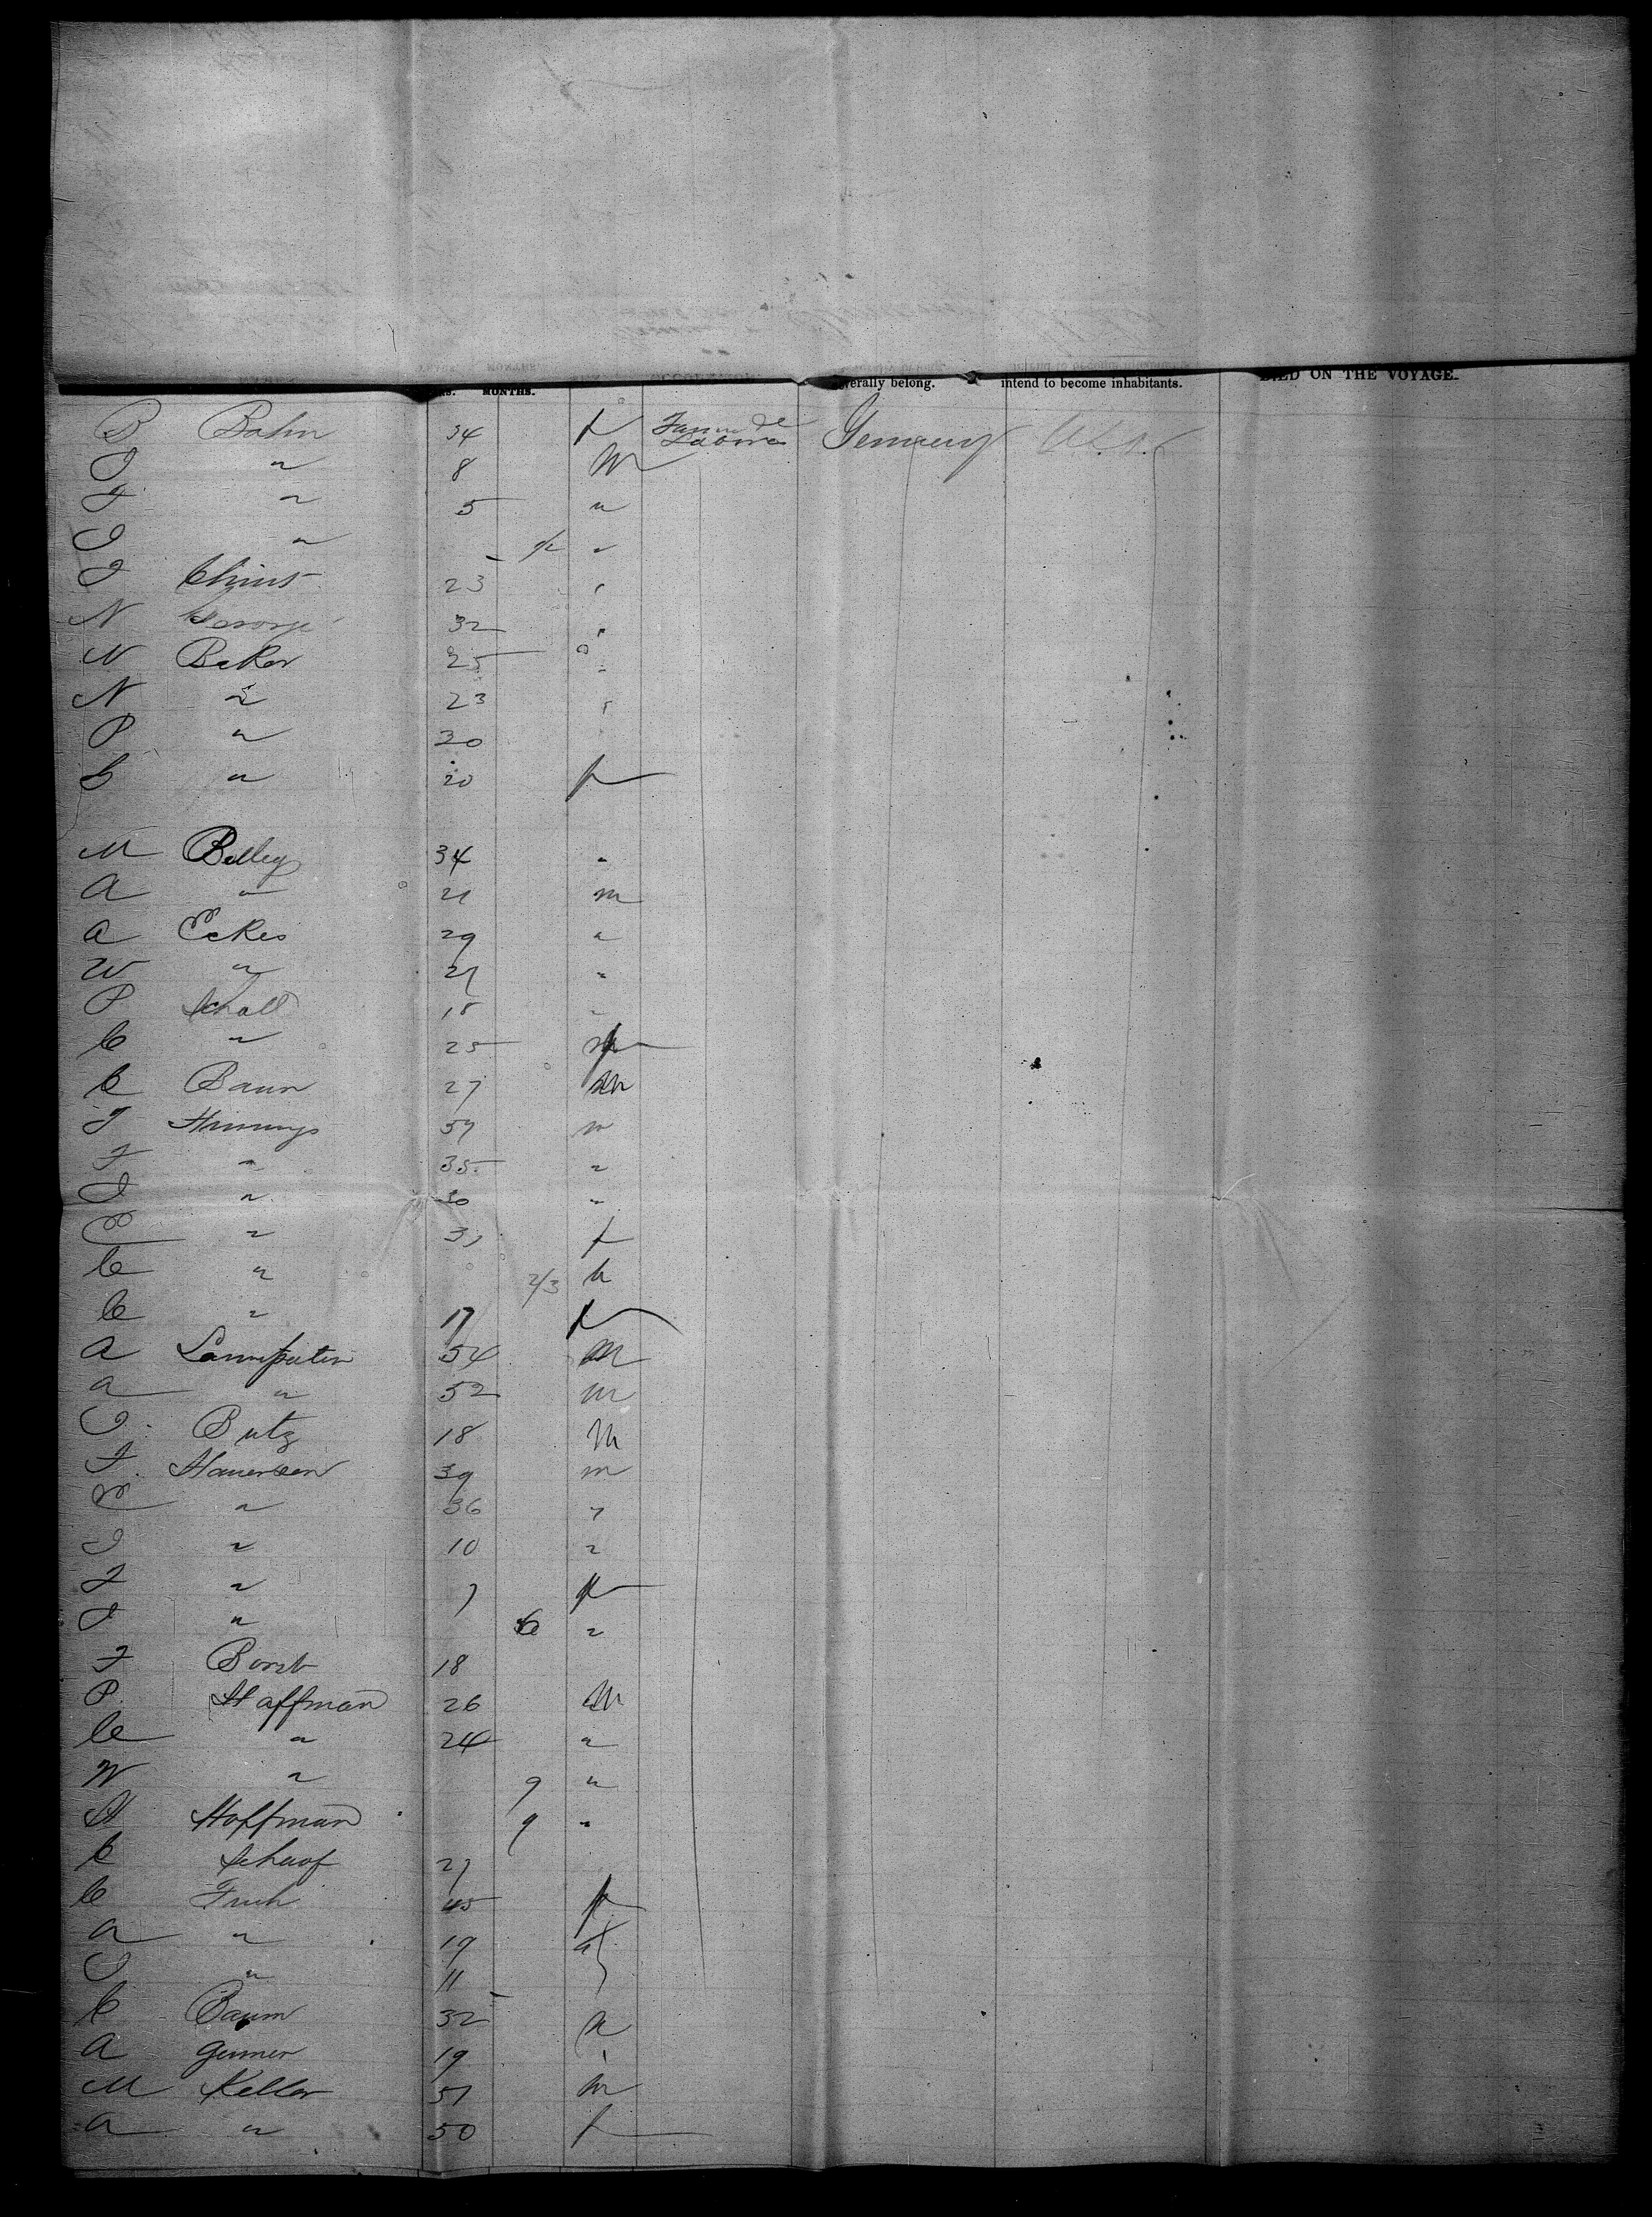 MONTHS. erally belong. intend to become inhabitants. DIED ON THE VOYAGE.
B Bahn 34 f Farm Laborer Germany
J " 8 M
F " 5 "
J " "
J 23 "
N George 32 "
N Baker 25 "
N " 23 "
P " 30
G " 20 f
M Belley 34 "
A " 21 m
A Eckes 29 "
W " 21 "
P Schall 18 "
C " 25 f
C Baun 27 m
J 57 m
F " 35 "
J " 30 "
E " 31 f
C " 2/3 "
C " 17 f
A 54 M
A " 52 m
J Butz 18 M
F 39 m
E " 36 "
J " 10 "
F " 7 f
J " 6 "
F Borst 18
P Haffman 26 M
C " 24 "
W " 9 "
H Hoffman 9 "
C Schaof 27
C Fruh 45 f
A " 19 "
J " 11
C Baum 32
A Germer 19
M Keller 51 m
A " 50 f